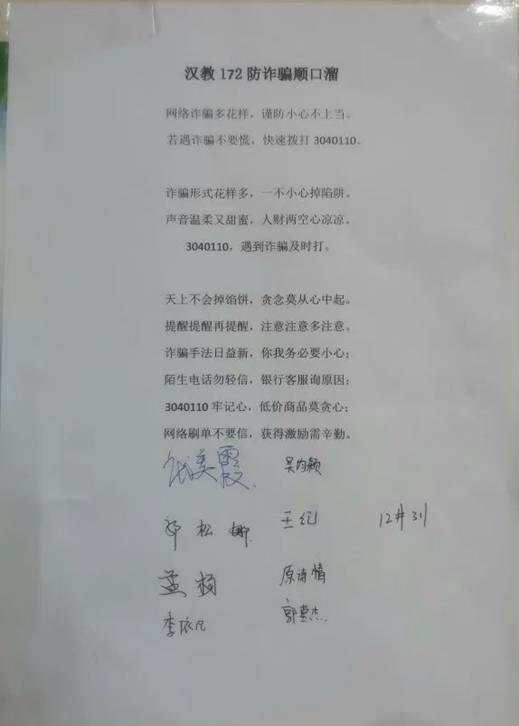 汉教 172 防诈骗顺口溜
网络诈骗多花样，谨防小心不上当。
若遇诈骗不要慌，快速拨打 3040110。
诈骗形式花样多，一不小心掉陷阱。
声音温柔又甜蜜，人财两空心凉凉。
3040110，遇到诈骗及时打。
天上不会掉馅饼，贪念莫从心中起。
提醒提醒再提醒，注意注意多注意。
诈骗手法日益新，你我务必要小心；
陌生电话勿轻信，银行客服询原因；
3040110 牢记心，低价商品莫贪心；
网络刷单不要信，获得激励需辛勤。
美霞
松娜 王纪 12#31
孟杨 原诗情
李依凡